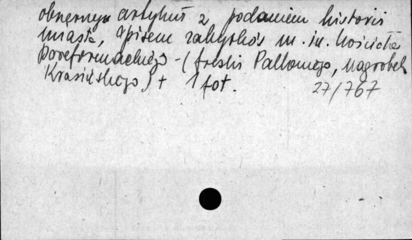 obszerny artykuł z podaniem historii
miasta, opisem zabytków m.in. kościoła
poreformackiego - (freski Pallomego, nagrobek
Krasickiego) + 1 fot. 27/767